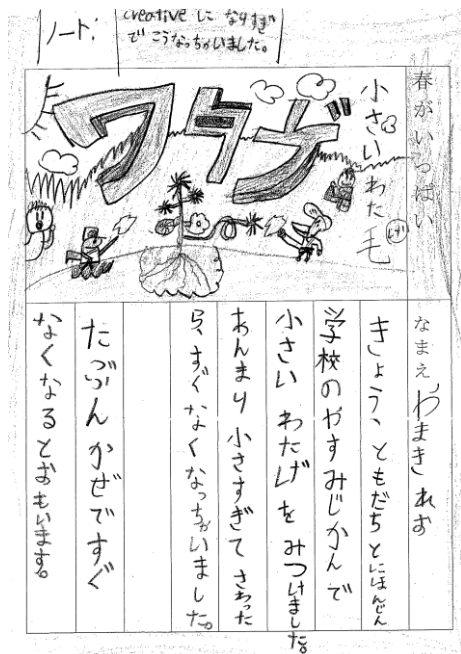 ノート:
creative に なりすぎ
で こうなっちゃいました。
春がいっぱい
小さい わた毛
(げ)
ワタゲ
なまえ わまき れお
きょう、ともだちと にほんじん
学校のやすみじかんで
小さい わたげ を みつけました。
あんまり 小さすぎて さわった
ら、すぐ なくなっちゃいました。
たぶん かぜですぐ
なくなる とおもいます。